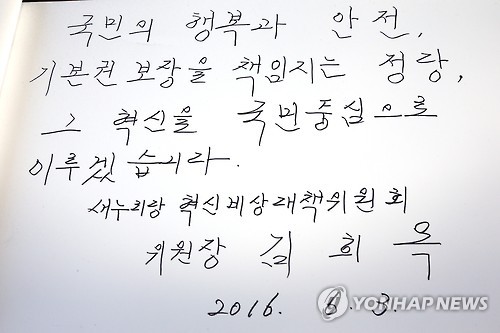 국민의 행복과 안전,
기본권 보장을 책임지는 정당,
그 혁신을 국민중심으로
이루겠습니다.
새누리당 혁신비상대책위원회
위원장 김희옥
2016. 6. 3.
YONHAP NEWS